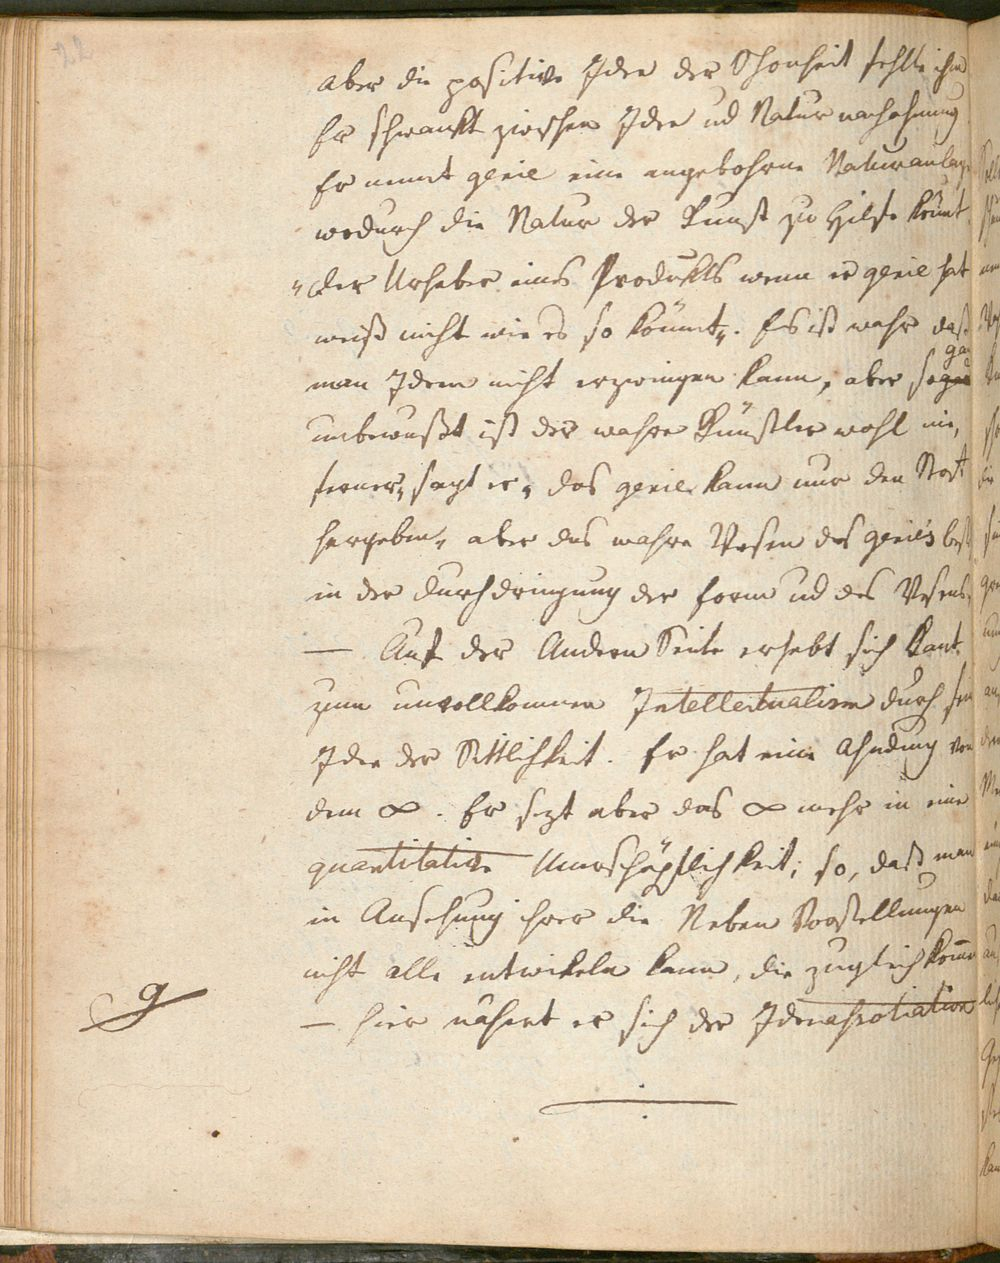 aber die positive Idee der Schönheit fehlte ihm
Er schwankt zwischen Idee ud Naturnachahmung.
Er nennt genie eine angebohrne Naturanlage
wodurch die Natur der Kunst zu Hilfe kömt.
„Der Urheber eines Produkts wenn er genie hat
weiß nicht wie es so kömmt„. Es ist wahr daß
man Ideen nicht erzwingen kann, aber so gar
unbewußt ist der wahre Künstler wohl nie,
ferner„ sagt er„ das genie kann nur den Stoff
hergeben„ aber das wahre Wesen des genie's best
in der Durchdringung der Form ud des Wesens.
— Auf der Andern Seite erhebt sich Kant
zum unvollkommen Intellectualism durch sein
Idee der Sittlichkeit. Er hat eine Ahndung von
dem ∞. Er sezt aber das ∞ mehr in eine
quantitative Unerschöpflichkeit; so, daß man
in Ansehung ihrer die Neben Vorstellungen
nicht alle entwikeln kann, die zugleich komen
— hier nähert er sich der Ideenassotiation